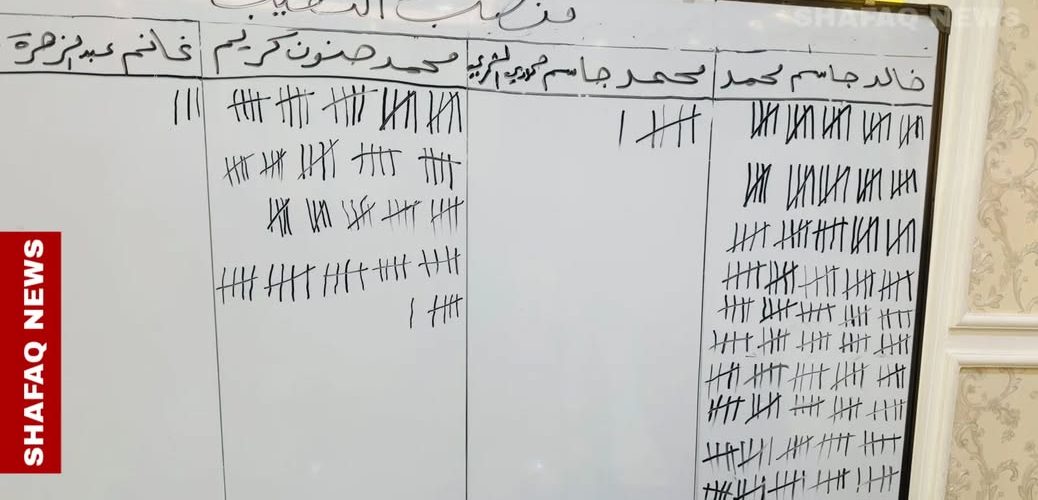 SHAFAQ NEWS
منصب النقيب
خالد جاسم محمد
محمد جاسم
محمد حنون كريم
غانم عبد الزهرة
SHAFAQ NEWS